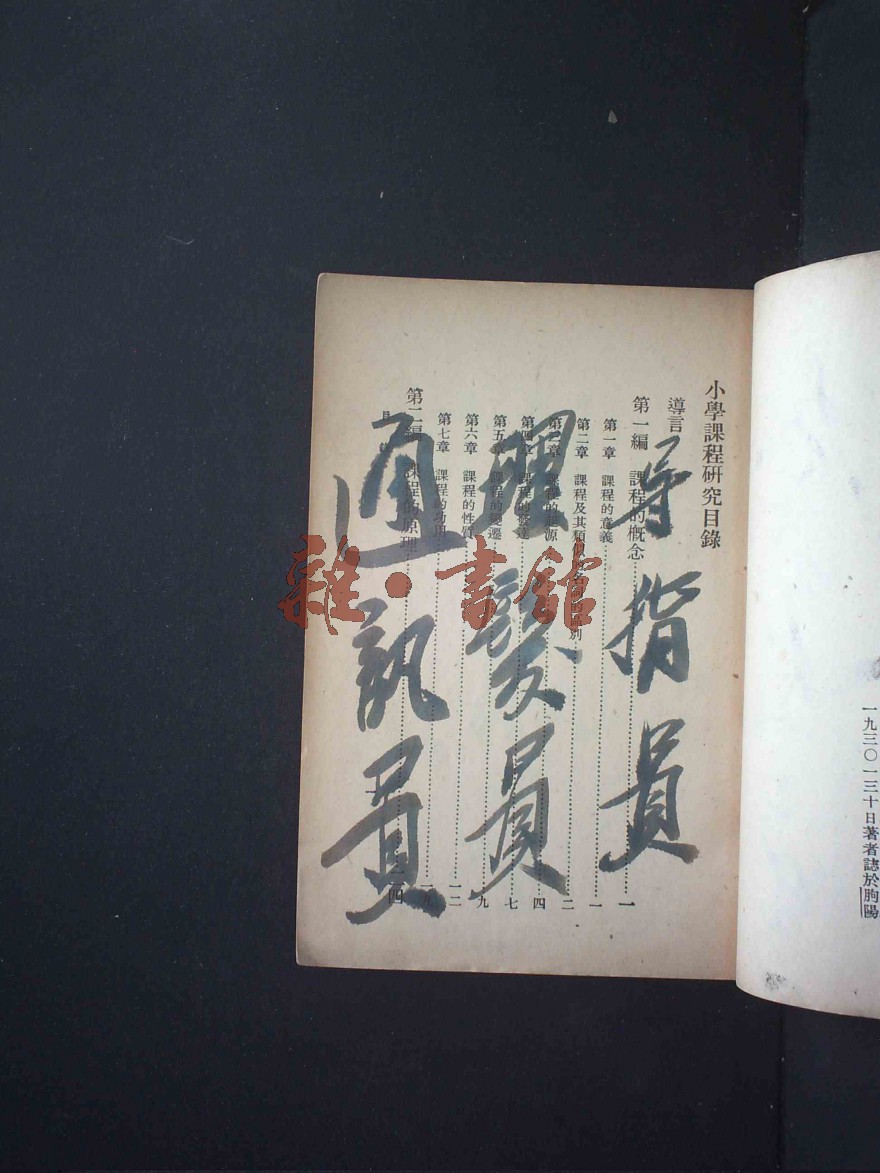 一九三〇一三十日著者誌於朐陽
小學課程研究目錄
導言
第一編 課程的概念……一
第一章 課程的意義……一
第二章 課程及其類似名詞的區別……二
第三章 課程的起源……四
第四章 課程的發達……七
第五章 課程的變遷……九
第六章 課程的性質……一二
第七章 課程的功用……一九
第二編 課程的原理……二四
目錄
一
导指員
理髮員
通訊員
雜·書館